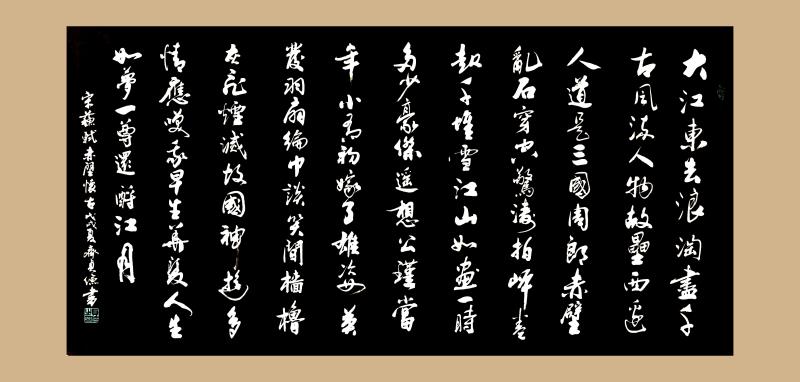 大江東去浪淘盡千
古風流人物故壘西邊
人道是三國周郎赤壁
亂石穿空驚濤拍岸卷
起千堆雪江山如畫一時
多少豪傑遙想公瑾當
年小喬初嫁了雄姿英
發羽扇綸巾談笑間檣櫓
灰飛煙滅故國神遊多
情應咲我早生華髮人生
如夢一尊還酹江月
宋蘇軾赤壁懷古戊戌夏齊貞德書